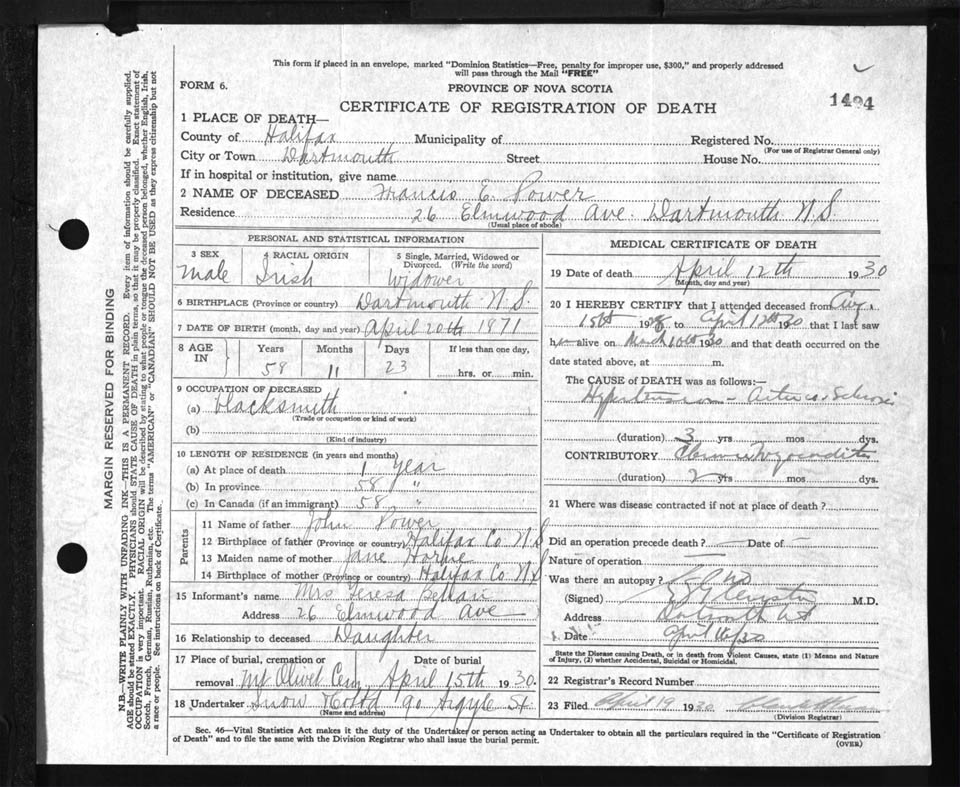 This form if placed in an envelope, marked "Dominion Statistics—Free, penalty for improper use, $300," and properly addressed
will pass through the Mail "FREE"
FORM 6.
PROVINCE OF NOVA SCOTIA
CERTIFICATE OF REGISTRATION OF DEATH
1494
MARGIN RESERVED FOR BINDING
N.B.—WRITE PLAINLY WITH UNFADING INK—THIS IS A PERMANENT RECORD. Every item of information should be carefully supplied.
AGE should be stated EXACTLY. PHYSICIANS should STATE CAUSE OF DEATH in plain terms, so that it may be properly classified. Exact statement of
OCCUPATION is very important. RACIAL ORIGIN will be described by stating to what people or tongue the deceased person belonged, whether English, Irish,
Scotch, French, German, Russian, Ruthenian, etc. The terms "AMERICAN" or "CANADIAN" SHOULD NOT BE USED as they express citizenship but not
a race or people. See instructions on back of Certificate.
1 PLACE OF DEATH—
County of Halifax Municipality of Registered No.
(For use of Registrar General only)
City or Town Dartmouth Street House No.
If in hospital or institution, give name
2 NAME OF DECEASED Francis E. Power
Residence 26 Elmwood Ave. Dartmouth N.S.
(Usual place of abode)
PERSONAL AND STATISTICAL INFORMATION
3 SEX 4 RACIAL ORIGIN 5 Single, Married, Widowed or
Divorced. (Write the word)
Male Irish Widower
6 BIRTHPLACE (Province or country) Dartmouth N.S.
7 DATE OF BIRTH (month, day and year) April 20th 1871
8 AGE IN Years Months Days If less than one day,
58 11 23 hrs. or min.
9 OCCUPATION OF DECEASED
(a) blacksmith
(Trade or occupation or kind of work)
(b)
(Kind of industry)
10 LENGTH OF RESIDENCE (in years and months)
(a) At place of death 1 year
(b) In province 58 "
(c) In Canada (if an immigrant) 58 "
Parents
11 Name of father John Power
12 Birthplace of father (Province or country) Halifax Co N.S
13 Maiden name of mother Jane
14 Birthplace of mother (Province or country) Halifax Co N.S
15 Informant's name Mrs Teresa
Address 26 Elmwood Ave
16 Relationship to deceased Daughter
17 Place of burial, cremation or Date of burial
removal Mt Olivet Cem April 15th 1930.
18 Undertaker Snow & Co Ltd 90 Argyle St.
(Name and address)
MEDICAL CERTIFICATE OF DEATH
19 Date of death April 12th 1930
(Month, day and year)
20 I HEREBY CERTIFY that I attended deceased from Aug
15th 1928 to April 12th 1930 that I last saw
him alive on March 1930 and that death occurred on the
date stated above, at m.
The CAUSE of DEATH was as follows:—
Hypertension — Arterio-Sclerosis
(duration) 3 yrs mos dys.
CONTRIBUTORY Chronic Myocarditis
(duration) 2 yrs mos dys.
21 Where was disease contracted if not at place of death?
Did an operation precede death? — Date of —
Nature of operation —
Was there an autopsy? No
(Signed) M.D.
Address Dartmouth NS
Date April 16/30
State the Disease causing Death, or in death from Violent Causes, state (1) Means and Nature
of Injury, (2) whether Accidental, Suicidal or Homicidal.
22 Registrar's Record Number
23 Filed April 19 1930
(Division Registrar)
Sec. 46—Vital Statistics Act makes it the duty of the Undertaker or person acting as Undertaker to obtain all the particulars required in the "Certificate of Registration
of Death" and to file the same with the Division Registrar who shall issue the burial permit.
(OVER)